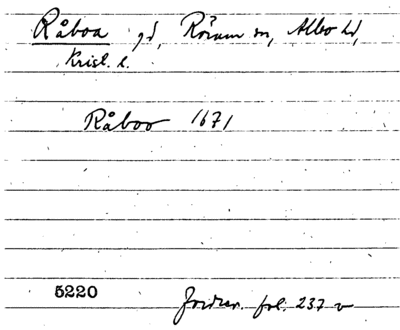 Råboa gd, Rörum sn, Albo hd,
Krist. l.
Råboo 1671
5220 Jordrev. fol. 237 v